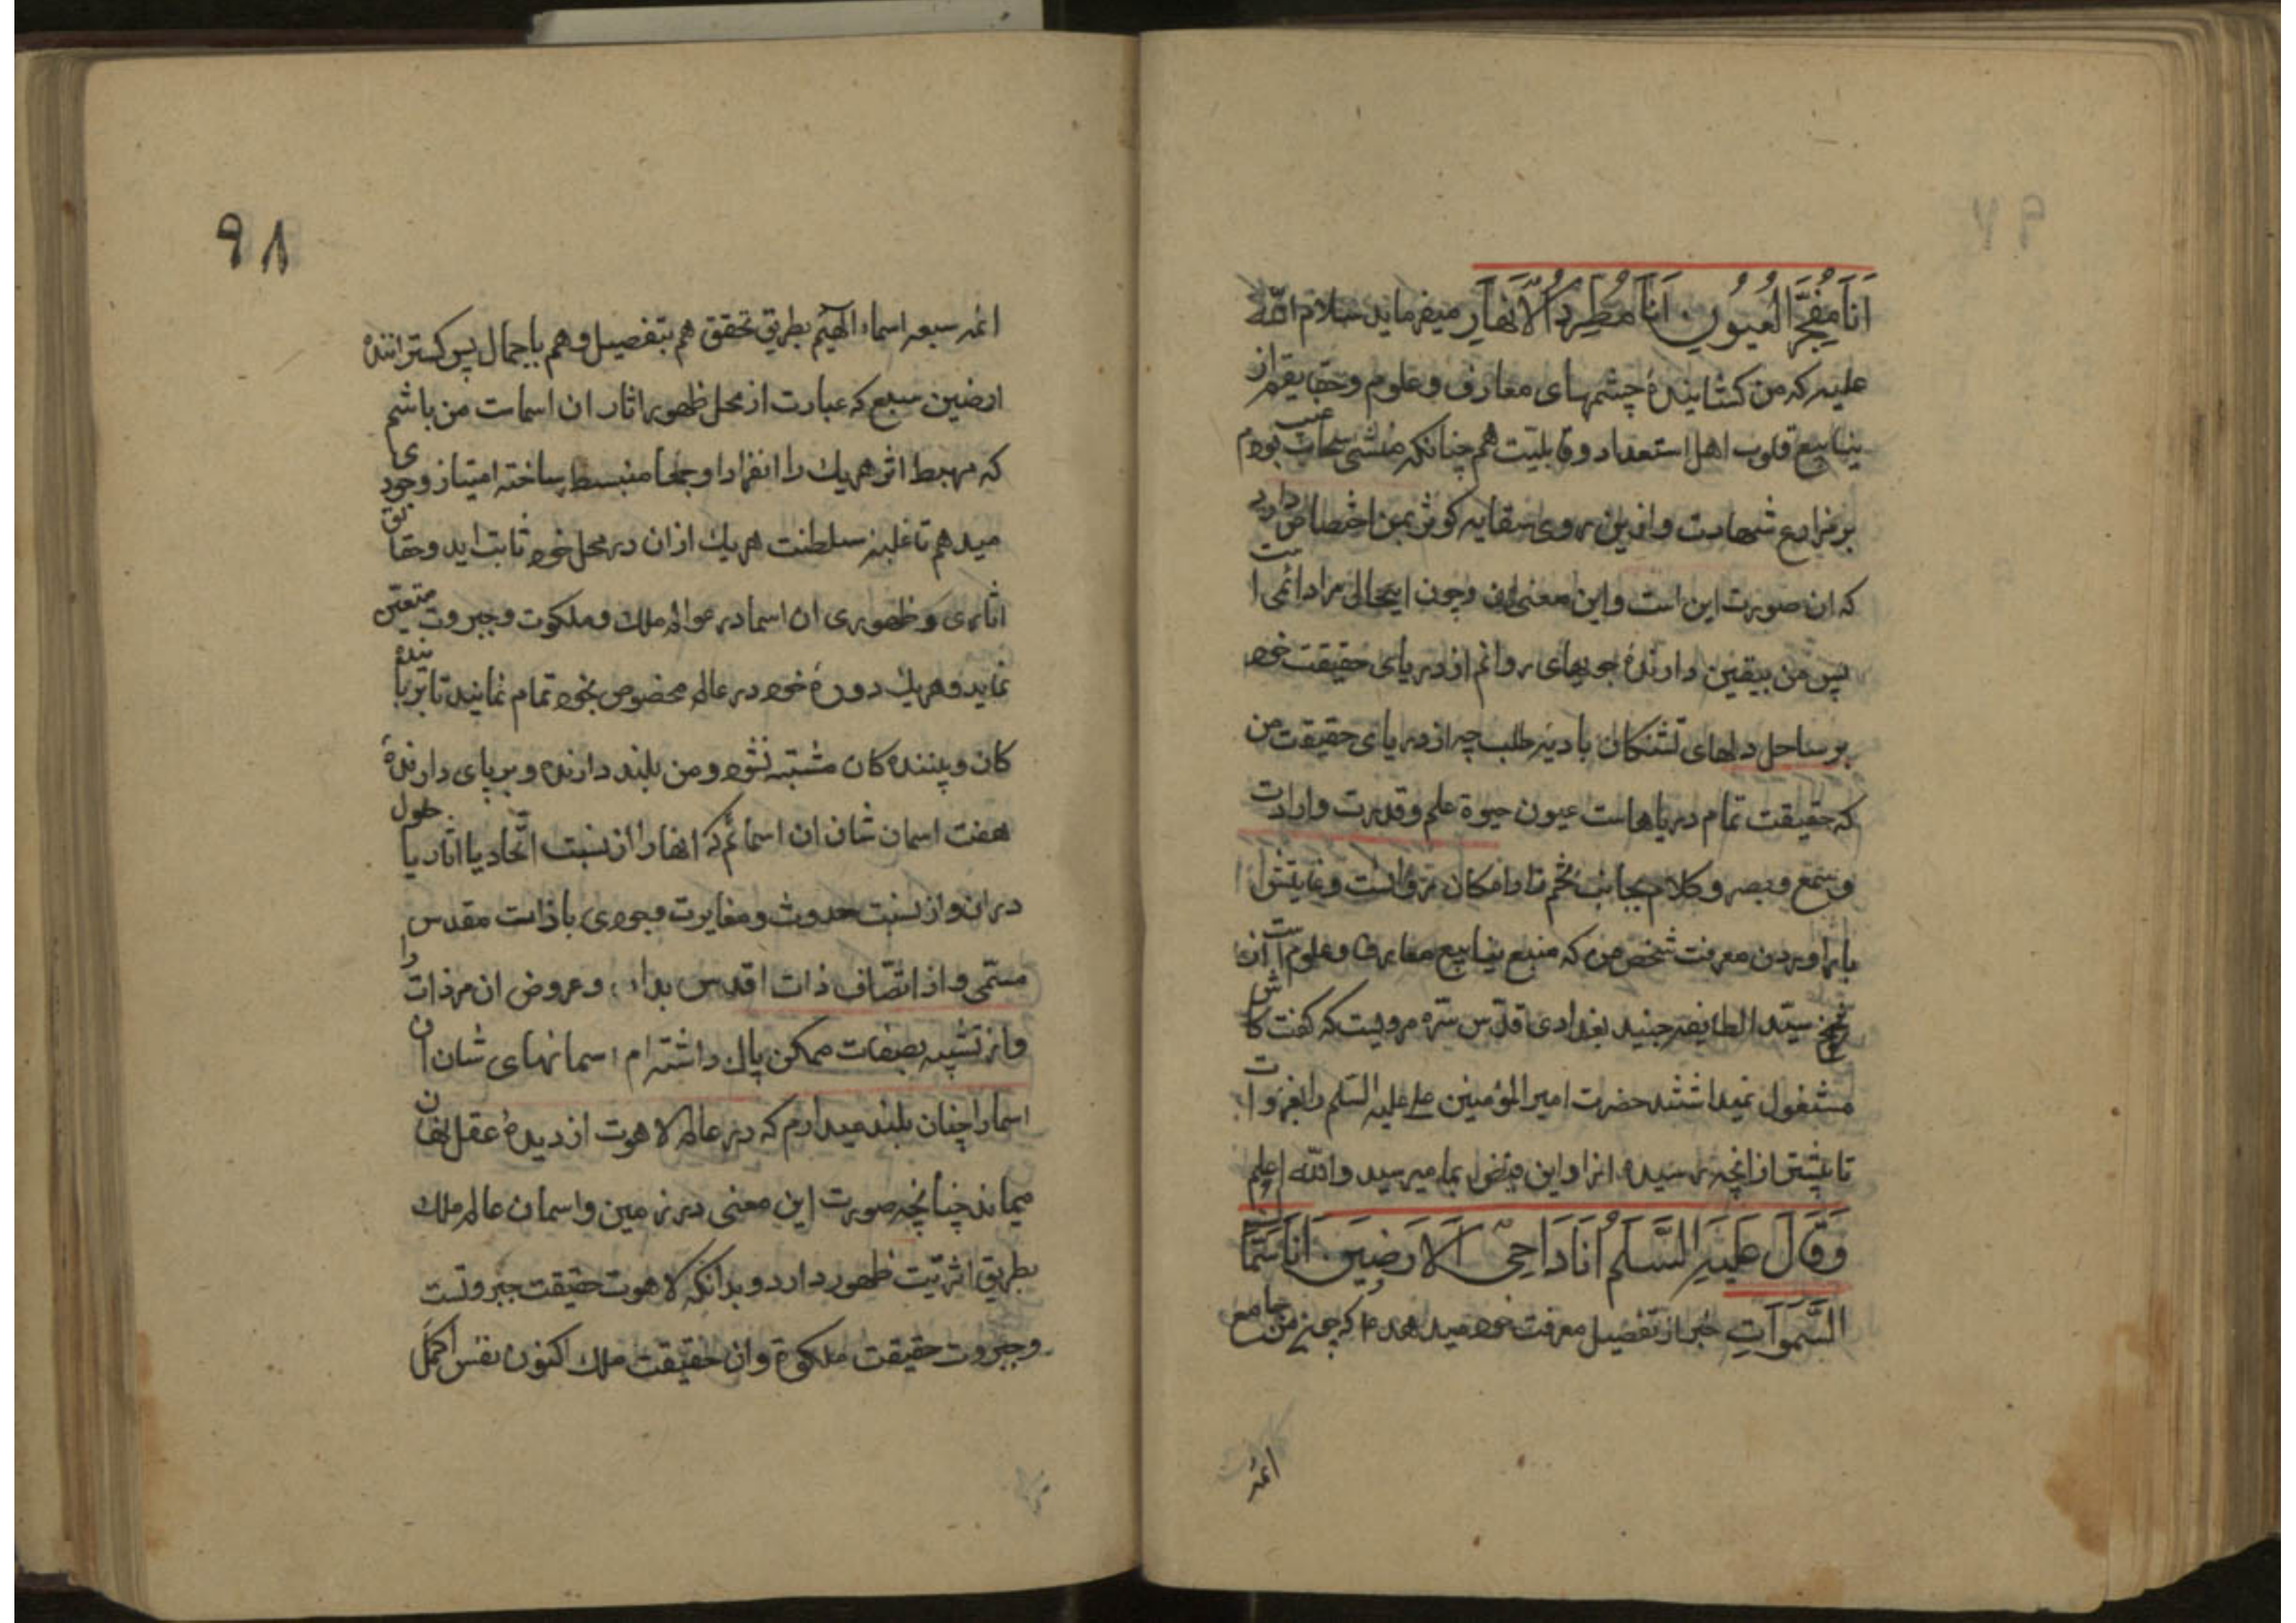 اَنَا مُفَجِّرُ الْعُيُونِ اَنَا مُطَرِّدُ الْاَنْهَارِ میفرماید سلام الله
علیه که من کشایندهٔ چشمهای معارف و علوم و حقایقم از
ینابیع قلوب اهل استعداد و قابلیت هم چنانکه منشئ سحاب غیب بودم
بر مزارع شهادت و ازین روی سقایه کوثر بمن اختصاص دارد
که ان صورت این است و این معنی ان و چون اینحال مرا دائمی است
پس من بیقین دارندهٔ جویهای روانم از دریای حقیقت خود
بر ساحل دلهای تشنکان بادیه طلب چه از دریای حقیقت من
که حقیقت تمام دریاهاست عیون حیوة علم و قدرت وارادت
و سمع و بصر و کلام بجانب
معرفت شخص من که منبع ینابیع معارف و علوم است از
سید الطایفه جنید بغدادی قدس سره مرویست که کفت کاش
مشغول نمیداشتند حضرت امیر المؤمنین علی علیه السلم را بغزوات
تا بیشتر از انچه رسیده از او این فیض بما میرسید والله اعلم
وَقَالَ عَلَیْهِ السَّلَمُ اَنَا دَاحِی الْاَرَضِینَ اَنَا سَمَّاكُ
السَّمَوَاتِ خبر از تفصیل معرفت خود میدهد که چون من جامع
ائمه
٩٨
ائمه سبعه اسماء الهیم بطریق تحقق هم بتفصیل و هم باجمال پس کسترانندهٔ
ارضین سبع که عبارت از محل ظهور اثار ان اسماست من باشم
که مهبط اثر هر یك را انفرادا و جمعا منبسط ساخته امتیاز وجودی
میدهم تا غلبه سلطنت هر یك از ان در محل خود ثابت اید و حقایق
اثاری و ظهوری ان اسما در عوالم ملك و ملکوت و جبروت متعین
نماید و هر یك دورهٔ خود در عالم مخصوص بخود تمام نمایند تا بر یابنده
کان و بیننده کان مشتبه نشود و من بلند دارنده و برپای دارندهٔ
هفت اسمان شان ان اسمائم که انها را از نسبت اتحاد یا اثار یا حلول
در ان و از نسبت حدوث و مغایرت وجودی با ذات مقدس
مسمی و از اتصاف ذات اقدس بدان و عروض ان مر ذات را
و از تشبیه بصفات ممکن پاك داشته ام اسمانهای شان ان
اسما را چنان بلند میدارم که در عالم لاهوت از دیدهٔ عقل نهان
میماند چنانچه صورت این معنی در زمین و اسمان عالم ملك
بطریق اثریت ظهور دارد و بدانکه لاهوت حقیقت جبروتست
و جبروت حقیقت ملکوة و ان حقیقت ملك اکنون نفس اکمل